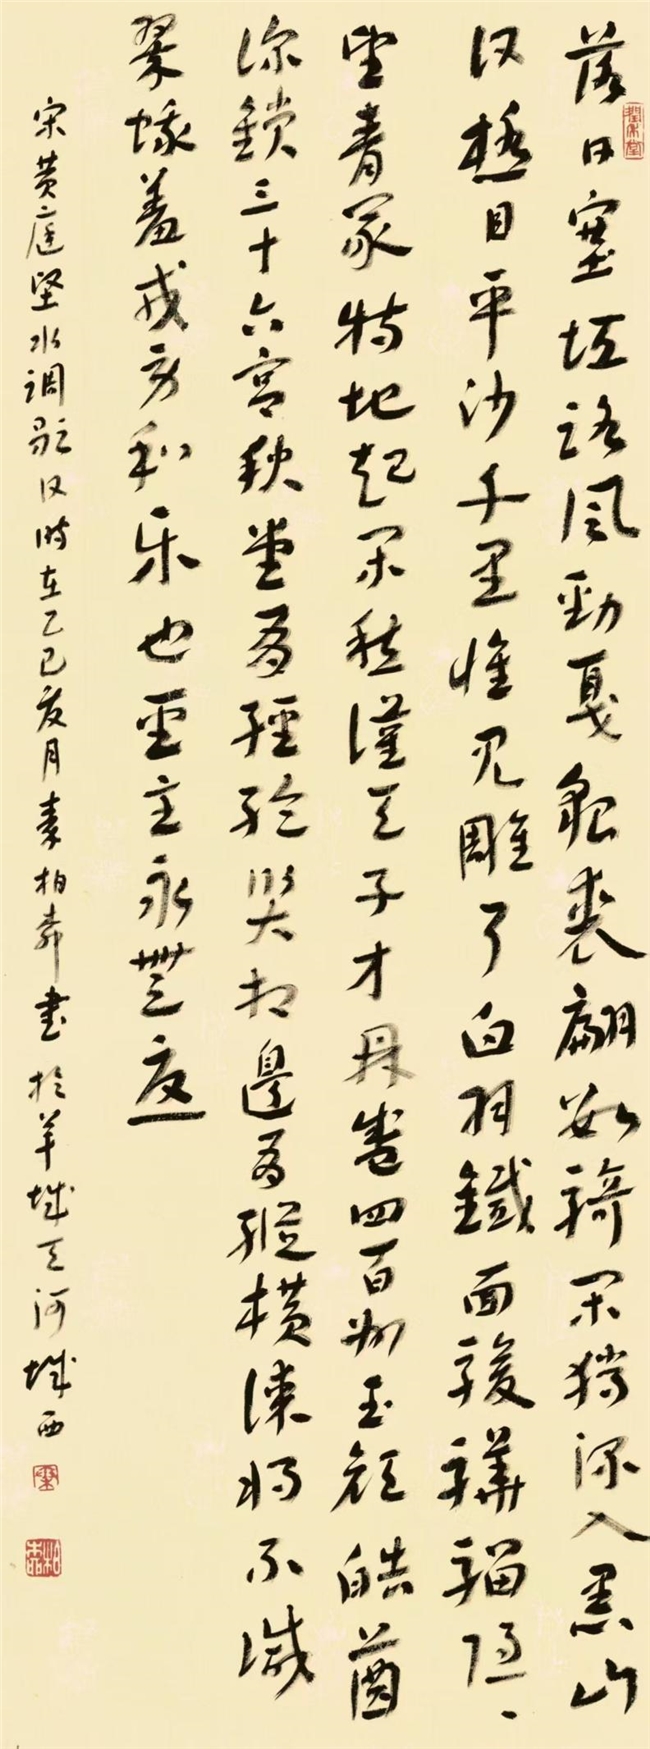 落日塞垣路风劲戛貂裘翩数骑闲猎深入黑山
头极目平沙千里惟见雕弓白羽鐵面骏驊骝隐、
望青冢特地起闲愁漢天子方鼎盛四百州玉颜皓齒
深鎖三十六宫秋堂有经纶贤相邊有縱横谋将不減
翠蛾羞戎虏和乐也聖主永無忧
宋黄庭坚水调歌头时在乙巳夏月柏书於羊城天河城西